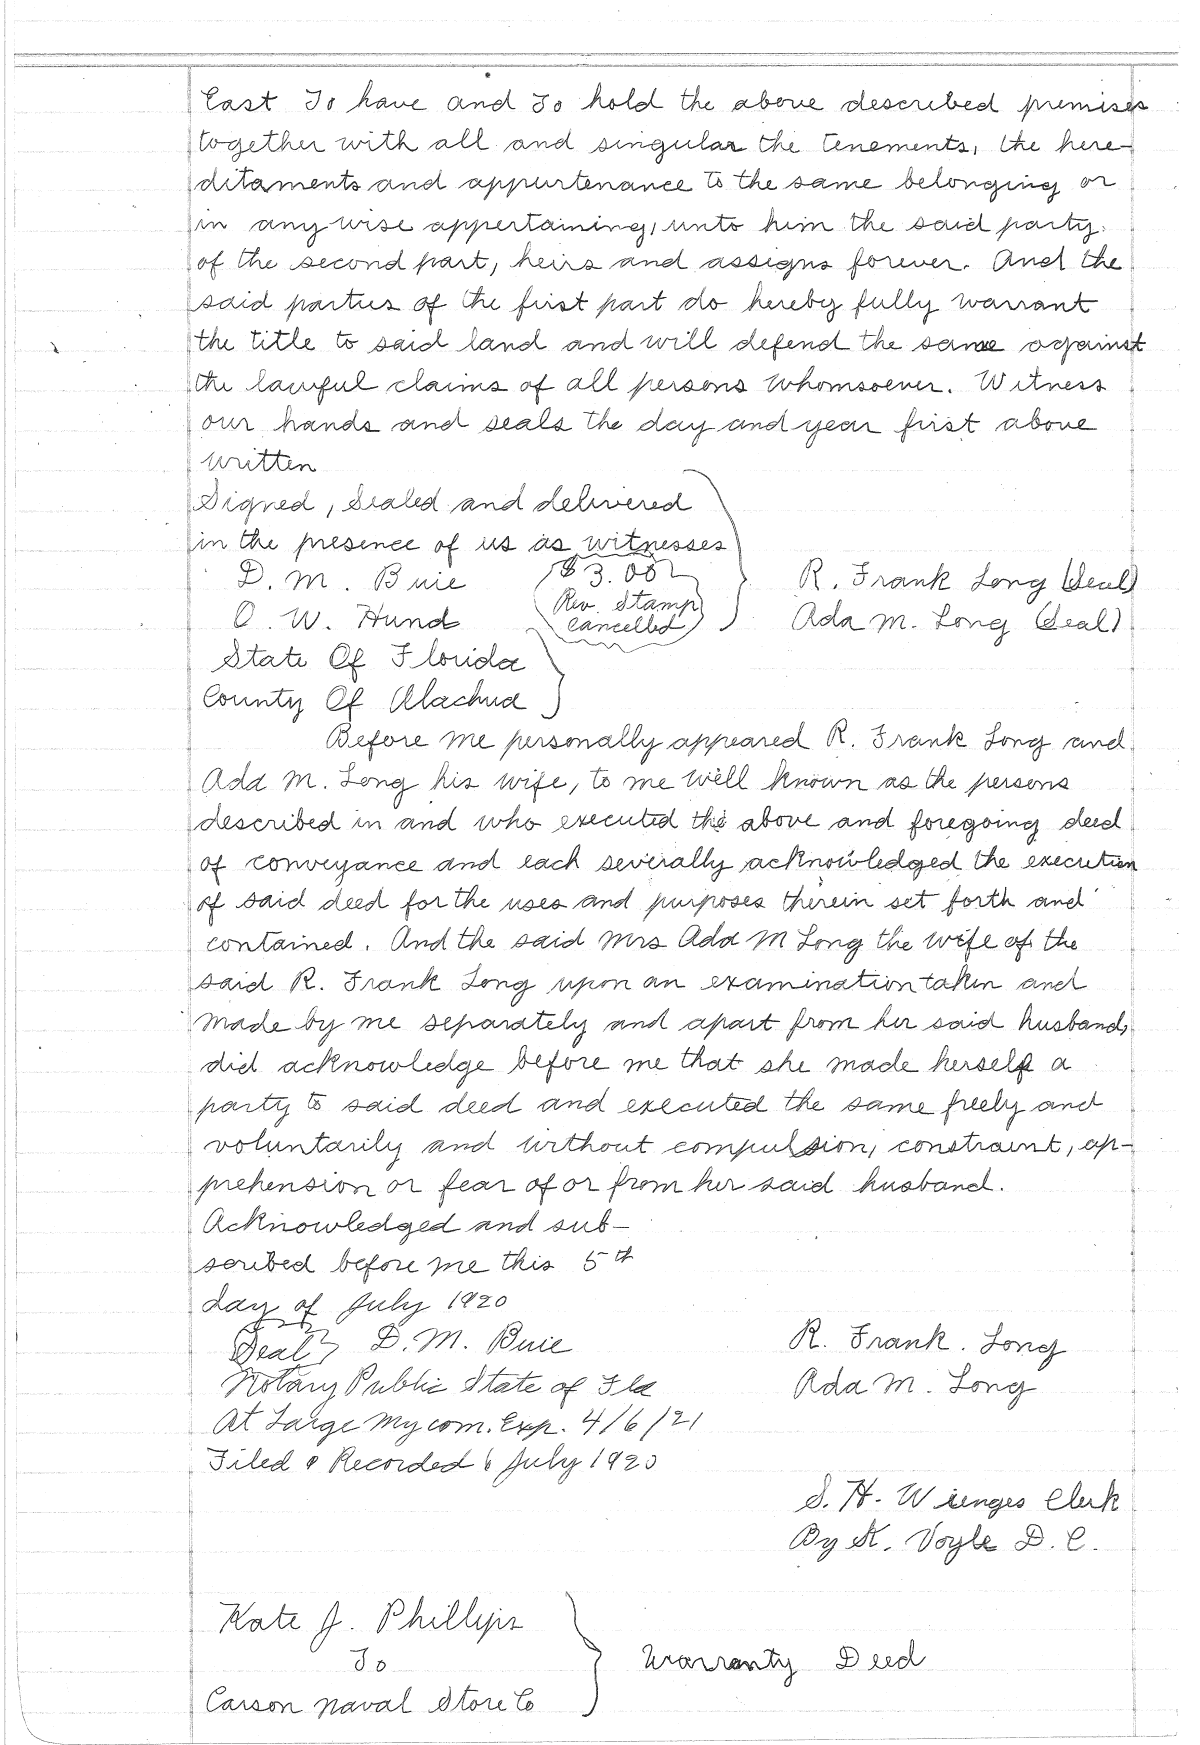 East To have and To hold the above described premises
together with all and singular the tenements, the here-
ditaments and appurtenance to the same belonging or
in any wise appertaining, unto him the said party
of the second part, heirs and assigns forever. And the
said parties of the first part do hereby fully warrant
the title to said land and will defend the same against
the lawful claims of all persons whomsoever. Witness
our hands and seals the day and year first above
written
Signed, Sealed and delivered
in the presence of us as witnesses
D. M. Buie
$3.00
R. Frank Long (Seal)
O. W. Hund
Rev. Stamp
Cancelled
Ada M. Long (Seal)
State Of Florida
County Of Alachua
Before me personally appeared R. Frank Long and
Ada M. Long his wife, to me well known as the persons
described in and who executed the above and foregoing deed
of conveyance and each severally acknowledged the execution
of said deed for the uses and purposes therein set forth and
contained. And the said Mrs Ada M Long the wife of the
said R. Frank Long upon an examination taken and
made by me separately and apart from her said husband,
did acknowledge before me that she made herself a
party to said deed and executed the same freely and
voluntarily and without compulsion, constraint, ap-
prehension or fear of or from her said husband.
Acknowledged and sub-
scribed before me this 5th
day of July 1920
Seal D. M. Buie
R. Frank. Long
Notary Public State of Fla
Ada M. Long
At Large My com. Exp. 4/6/21
Filed & Recorded 6 July 1920
S. H. Wienges Clerk
By K. Voyle D. C.
Kate J. Phillips
To
Warranty Deed
Carson Naval Store Co